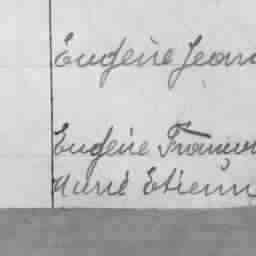 Eugène Jean
Eugène François
Marie Etienn